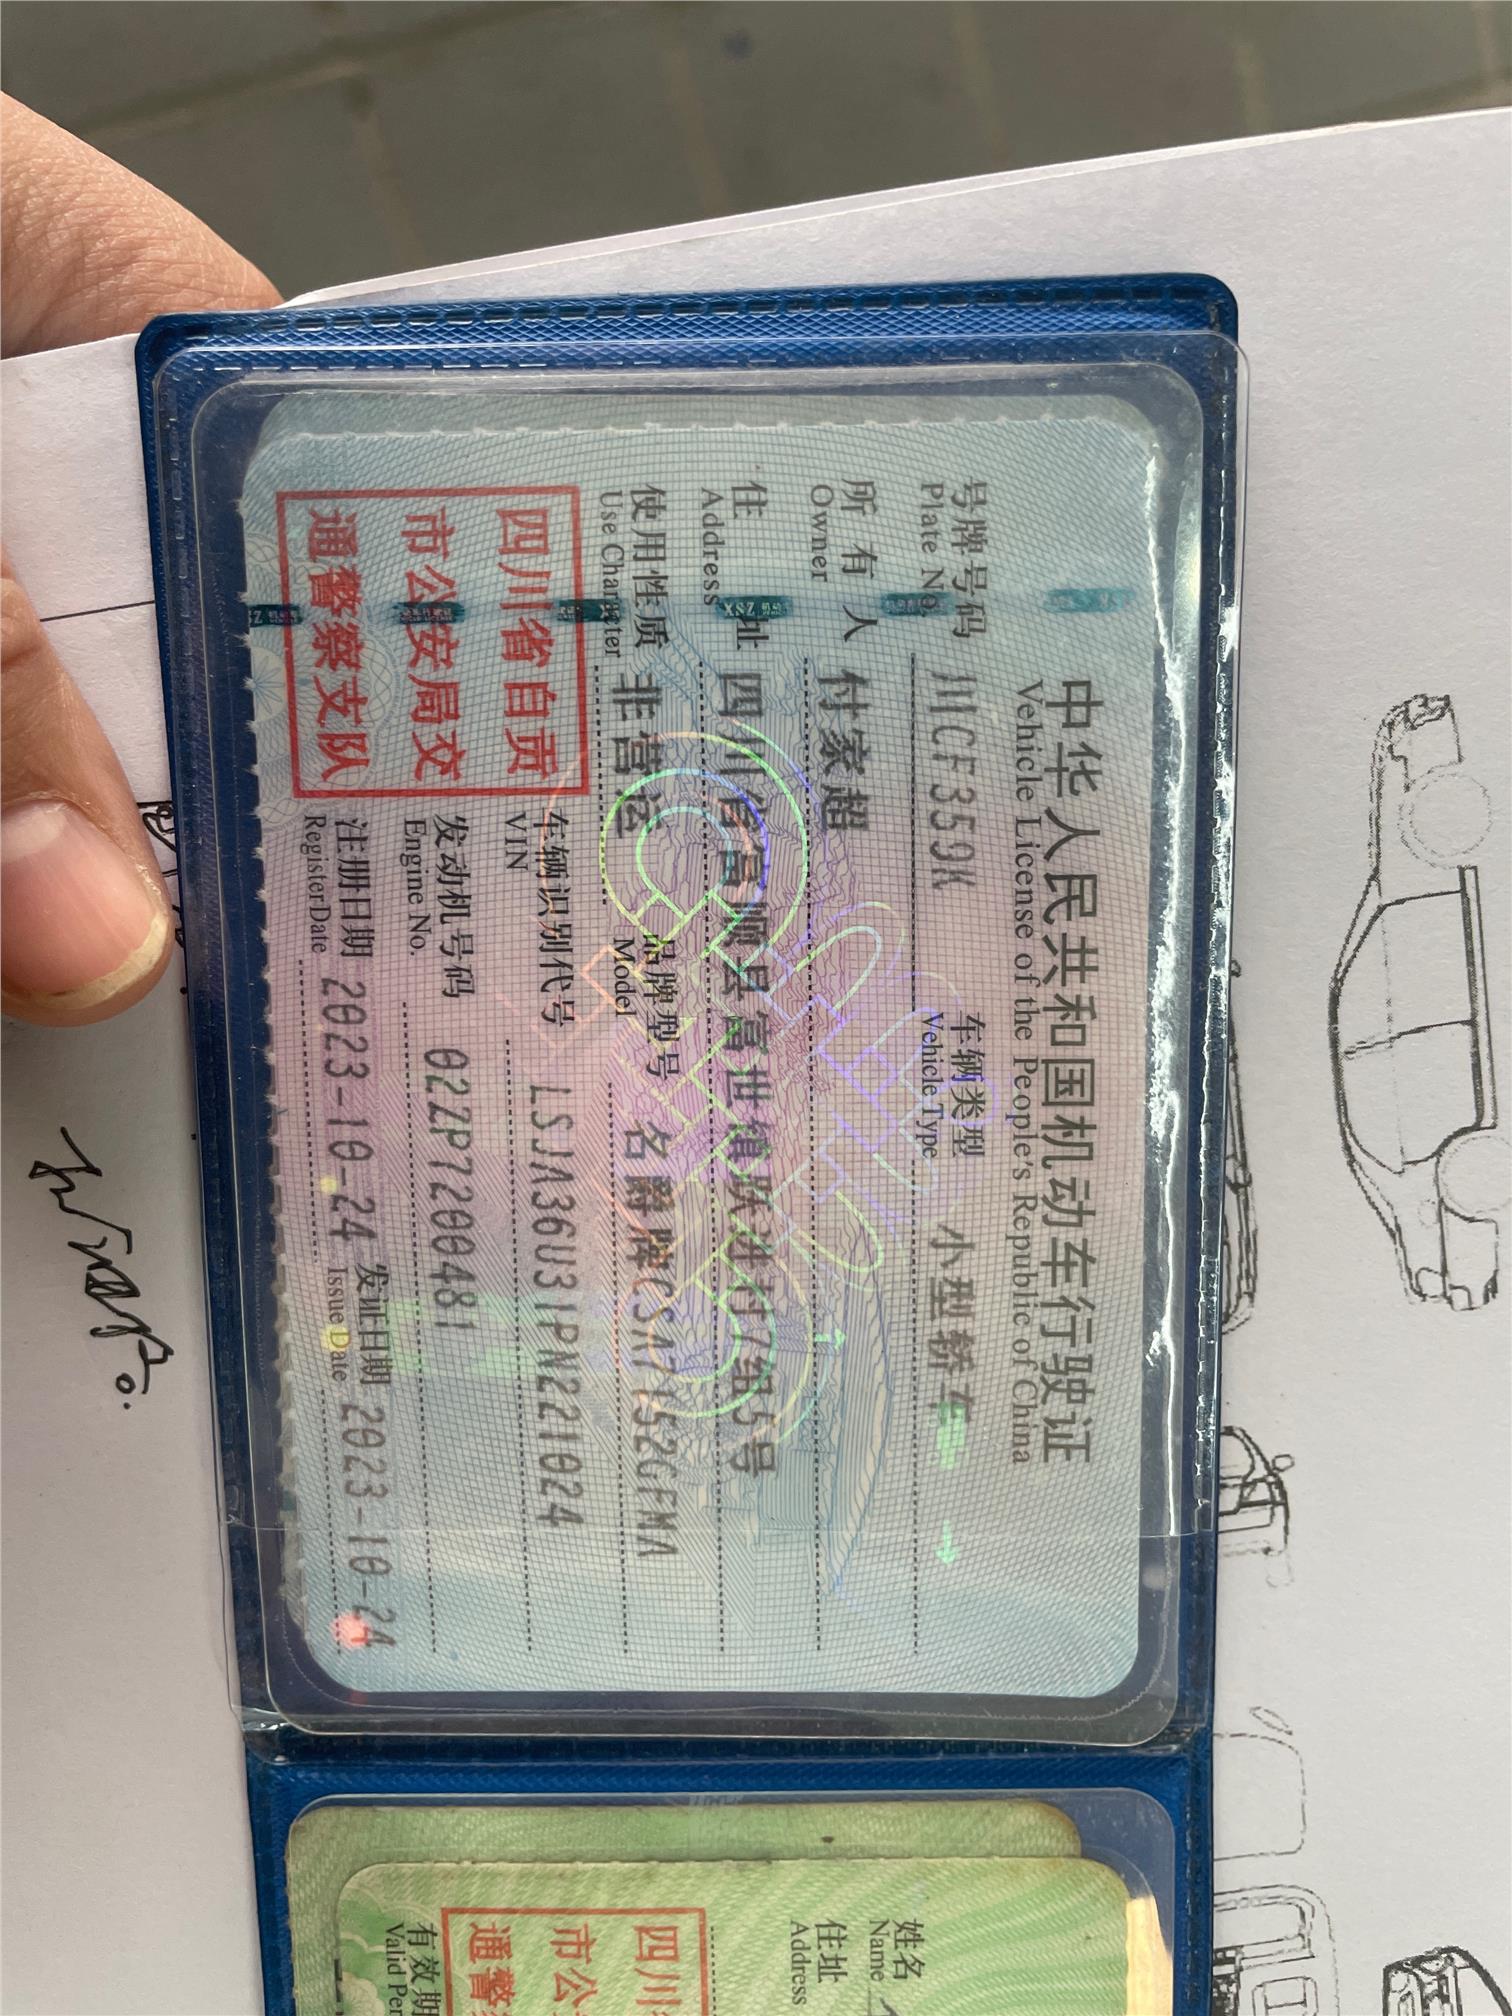 中华人民共和国机动车行驶证
Vehicle License of the People's Republic of China
号牌号码 川CF359K 车辆类型 小型轿车
Plate No. Vehicle Type
所有人 付家超
Owner
住址 四川省富顺县富世镇跃进村7组5号
Address
使用性质 非营运 品牌型号 名爵牌CSA7152GFMA
Use Character Model
四川省自贡
市公安局交
通警察支队
车辆识别代号 LSJA36U31PN221024
VIN
发动机号码 02ZP7200481
Engine No.
注册日期 2023-10-24 发证日期 2023-10-24
Register Date Issue Date
姓名
Name
住址
Address
四川
市公
通警
有效期
Valid Per